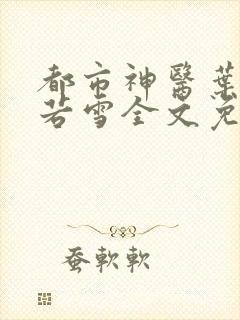 都市神醫葉
若雪全文免
蚕軟軟